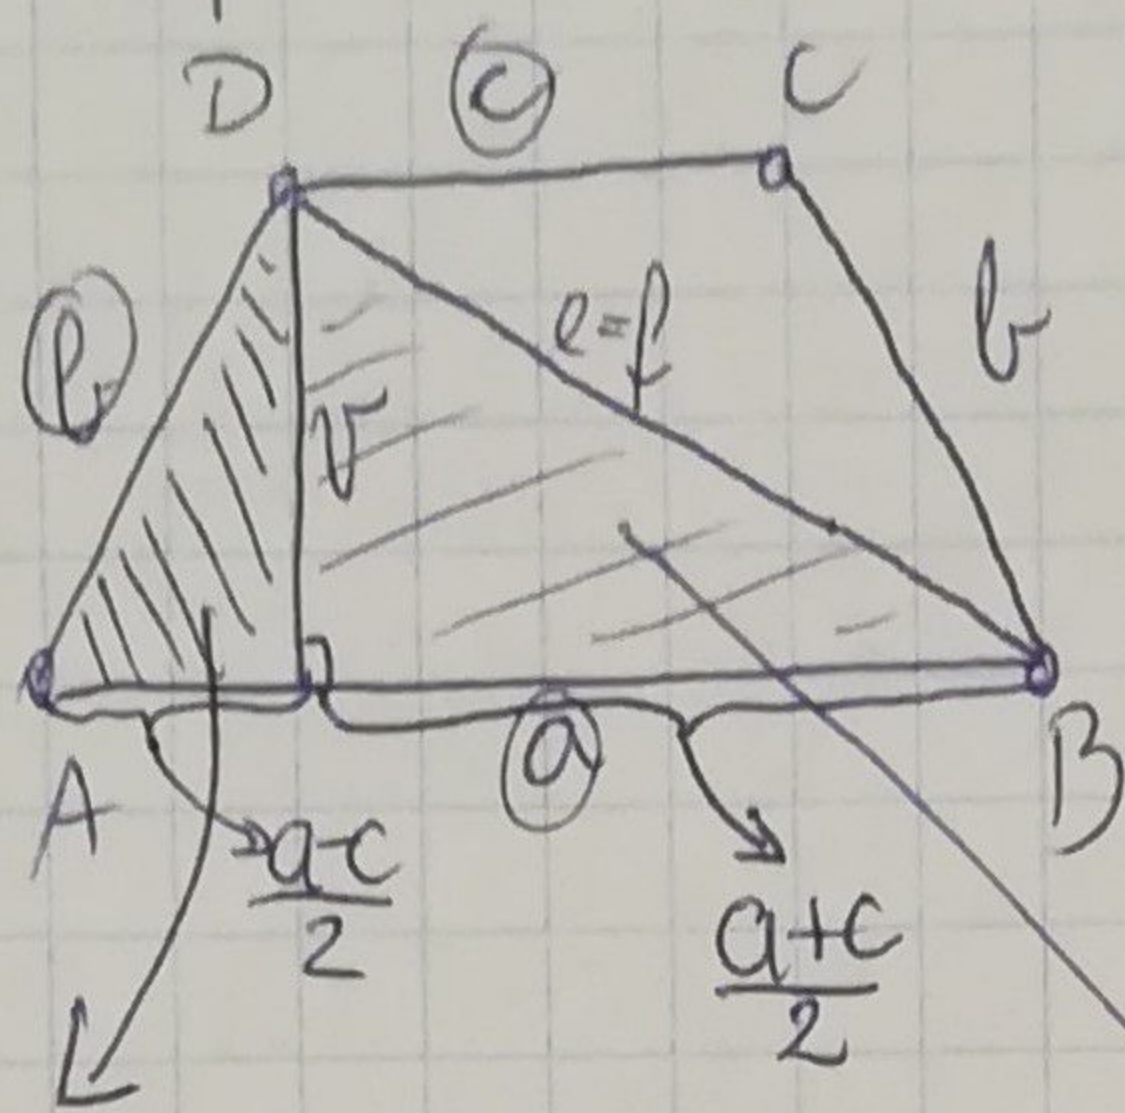 D c C
b e=f b
v
a
A B
a-c
2
a+c
2